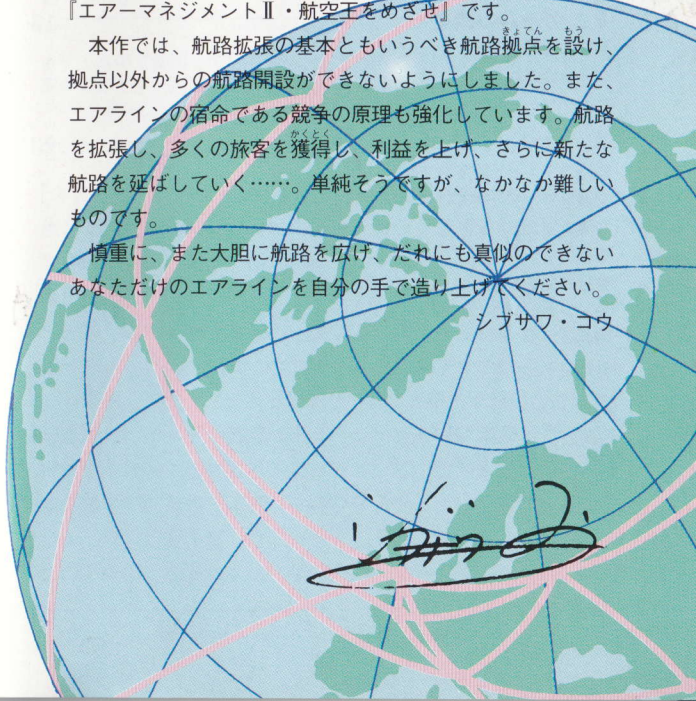 『エアーマネジメントⅡ・航空王をめざせ』です。
本作では、航路拡張の基本ともいうべき航路拠点を設け、
拠点以外からの航路開設ができないようにしました。また、
エアラインの宿命である競争の原理も強化しています。航路
を拡張し、多くの旅客を獲得し、利益を上げ、さらに新たな
航路を延ばしていく……。単純そうですが、なかなか難しい
ものです。
慎重に、また大胆に航路を広げ、だれにも真似のできない
あなただけのエアラインを自分の手で造り上げてください。
シブサワ・コウ